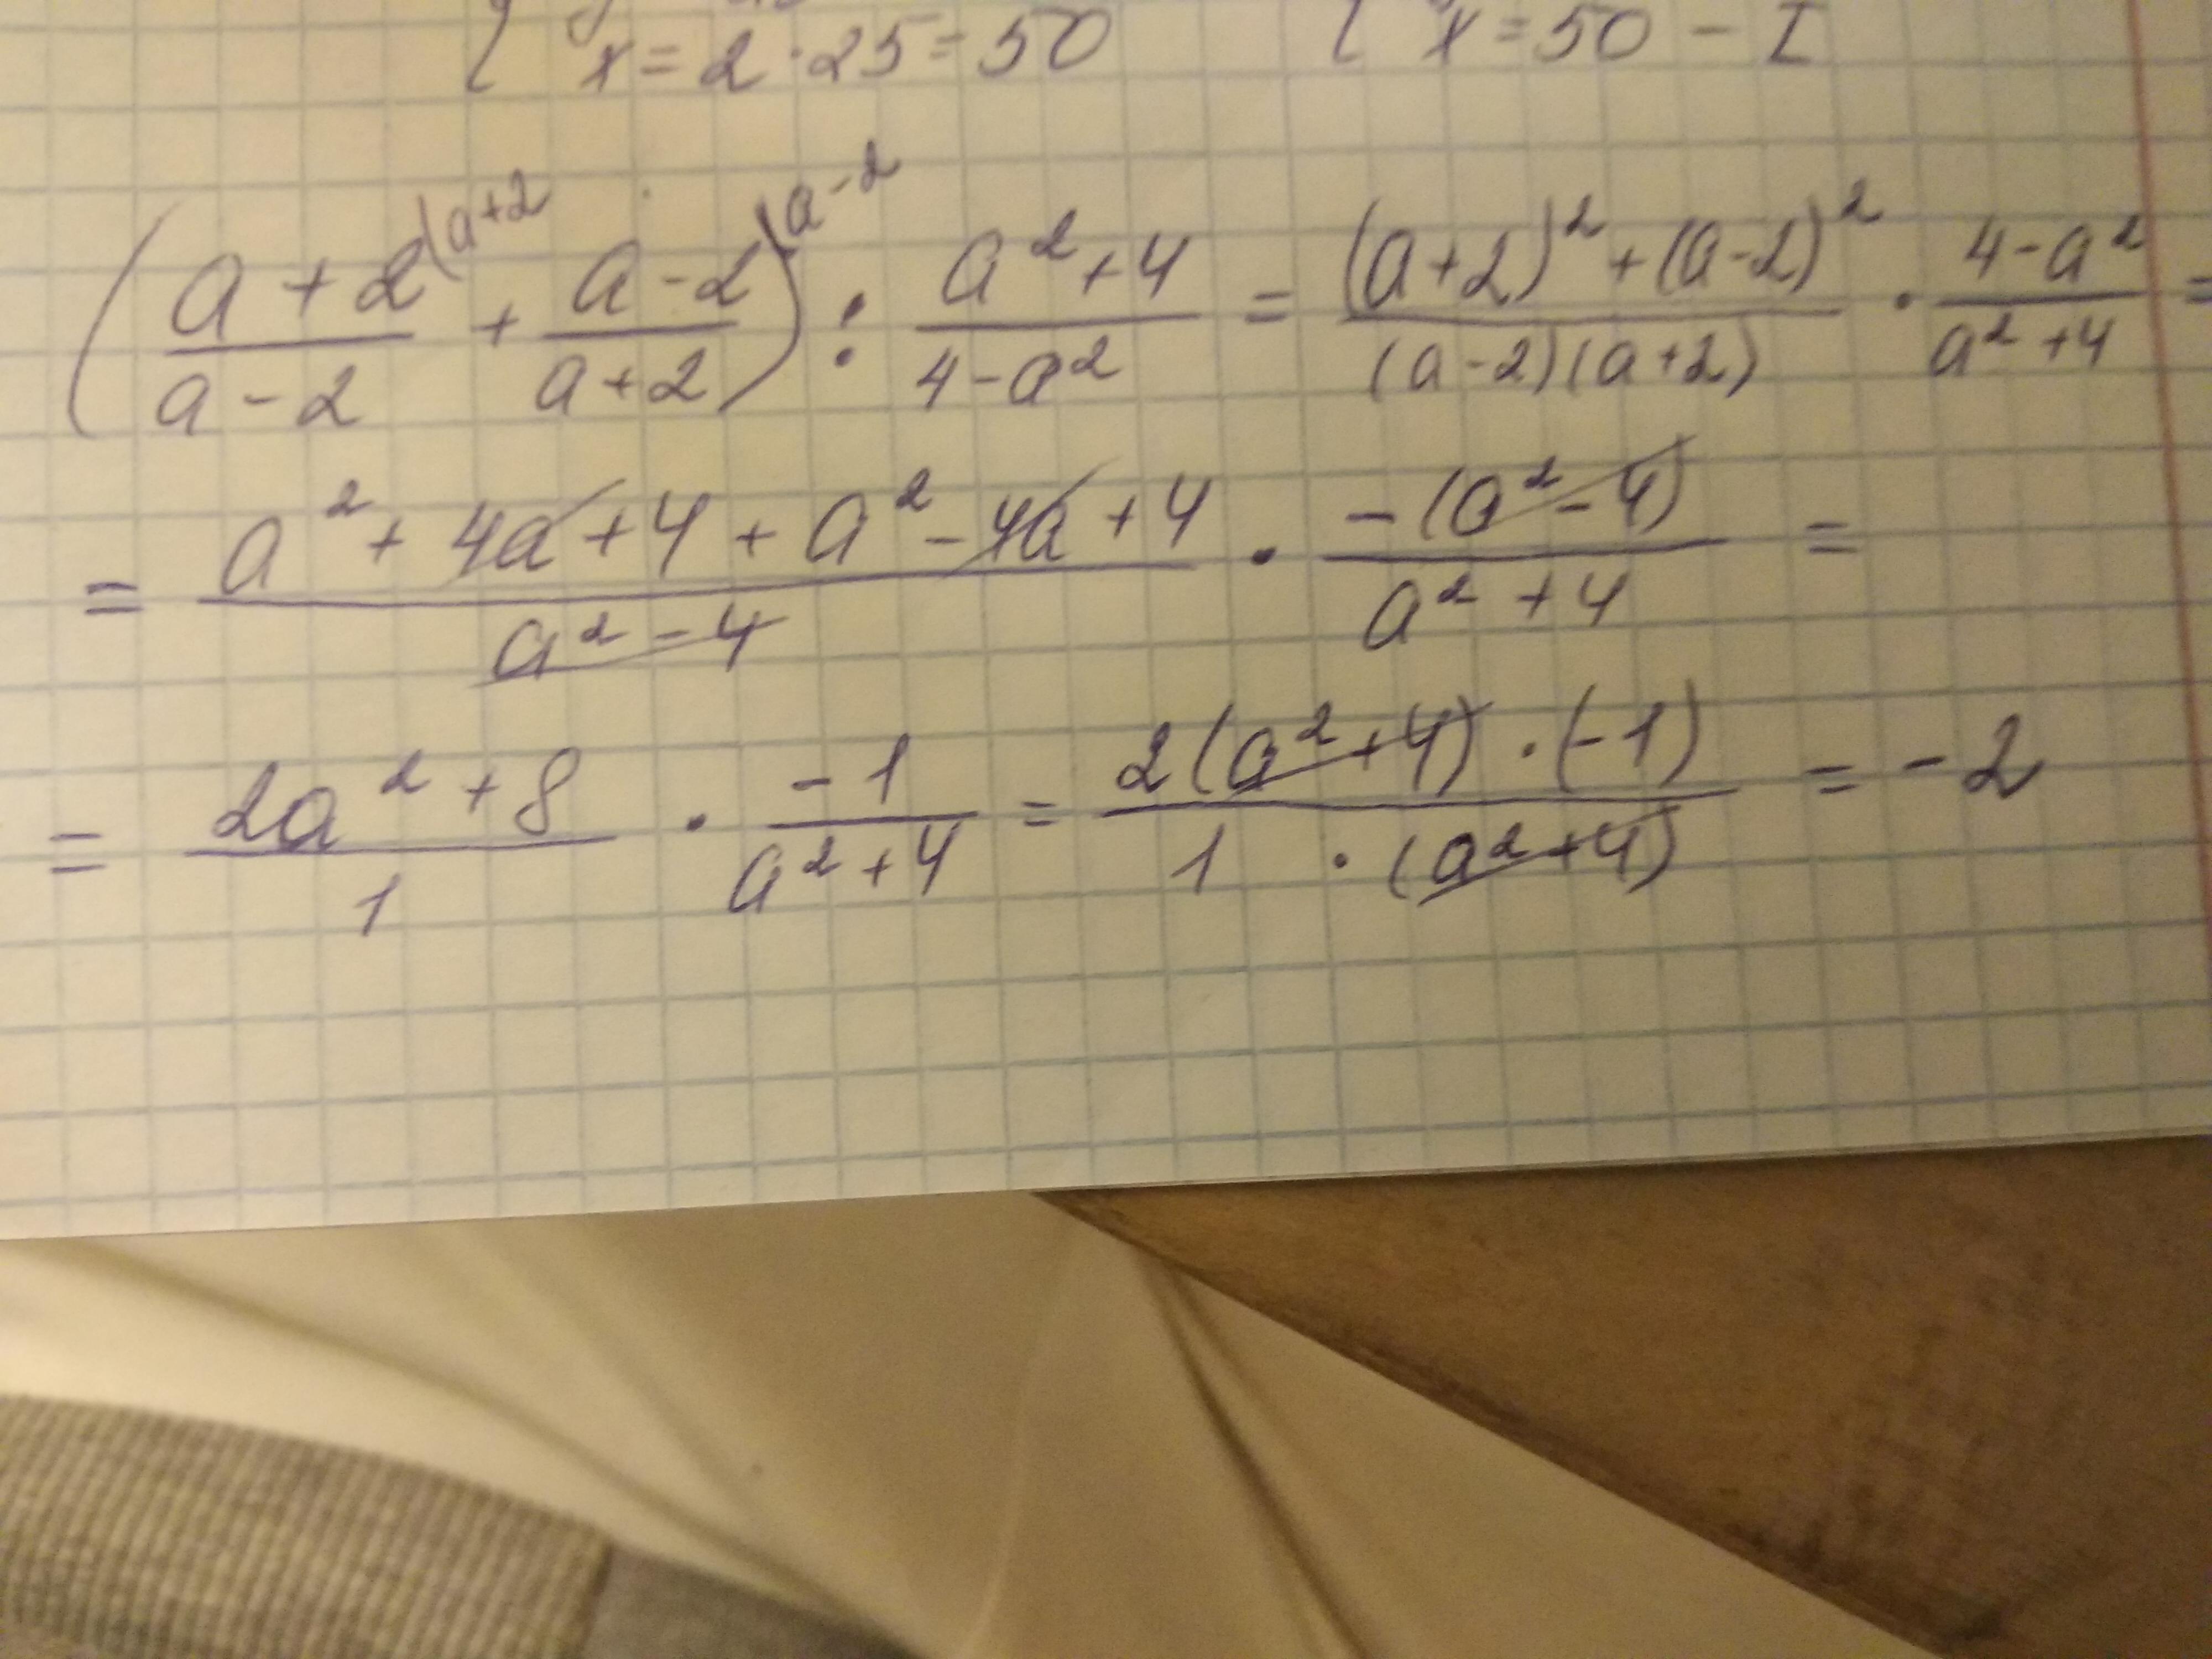 x = 2 · 25 = 50
x = 50 - I
((a + 2)/(a - 2) |a+2 + (a - 2)/(a + 2) |a-2) : (a² + 4)/(4 - a²) = ((a + 2)² + (a - 2)²)/((a - 2)(a + 2)) · (4 - a²)/(a² + 4) =
= (a² + 4a + 4 + a² - 4a + 4)/(a² - 4) · (-(a² - 4))/(a² + 4) =
= (2a² + 8)/1 · (-1)/(a² + 4) = (2(a² + 4) · (-1))/(1 · (a² + 4)) = -2